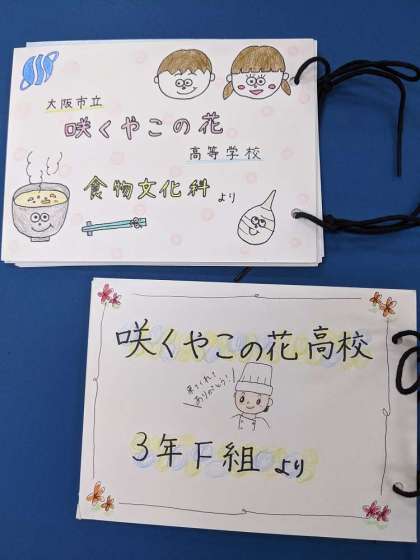 大阪市立
咲くやこの花
高等学校
食物文化科より
咲くやこの花高校
来てくれて
ありがとう!!
3年F組より